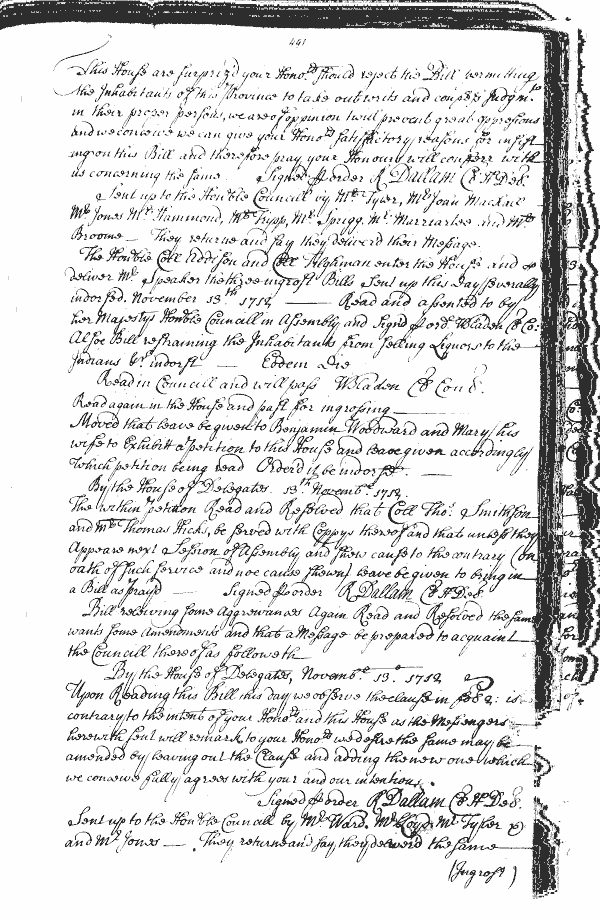 441
This House are surprizd your Hono.rs should reject the Bill permitting
the Inhabitants of this Province to take out writs and confess Judgm.t
in their proper persons, we are of oppinion twill prevent great oppressions
and we conceive we can give your Hono.rs satisfactory reasons for insist
ing on this Bill and therefore pray your Honours will conferr with
us concerning the same. Signed p order R Dallam Cl H Del.
Sent up to the Honble Councill by M.r Tyler, M.r Joan Mackall
M.r Jones M.r Hammond, M.r Tripp, M.r Sprigg M.r Marriartee and M.r
Broome — They return and say they deliverd their Message.
The Honble Coll Addison and Coll Tilghman enter the House and
deliver M.r Speaker the three ingrost Bills Sent up this day severally
indorsed. November 13.th 1712 — Read and assented to by
her Majestys Honble Councill in Assembly and Signd p ord. W Bladen Cl Co:
Alsoe Bill restraining the Inhabitants from selling Liquors to the
Indians &c indorst — Eodem Die
Read in Councill and will pass W Bladen Cl Coun.l
Read again in the House and past for ingrossing
Moved that leave be given to Benjamin Woodward and Mary his
wife to Exhibitt a petition to this House and leave given accordingly
Which petition being read Orderd it be indorst —
By the House of Delegates. 13.th Novemb.r 1712.
The within petition Read and Resolved that Coll Tho.s Smithson
and M.r Thomas Hicks, be served with Coppys thereof and that unless they
Appeare next Session of Assembly and shew cause to the contrary (on
oath of such service and noe cause shewn) leave be given to bring in
a Bill as prayd — Signed p order R Dallam Cl H Del
Bill releiving some Aggrevances Again Read and Resolved the same
wants some Amendments and that a Message be prepared to acquaint
the Councill thereof as followeth
By the House of Delegates, Novemb.r 13.o 1712,
Upon Reading this Bill this day we observe the clause in is
contrary to the intent of your Hono.rs and this House as the Messengers
herewith sent will remark to your Hono.rs we desire the same may be
amended by leaving out the Clause and adding the new one which
we conceive fully agrees with your and our intentions.
Signed p order R Dallam Cl H Del.
Sent up to the Honble Council by M.r Ward, M.r Lloyd M.r Tyler
and M.r Jones — They return and say they deliverd the same
(Ingrost)